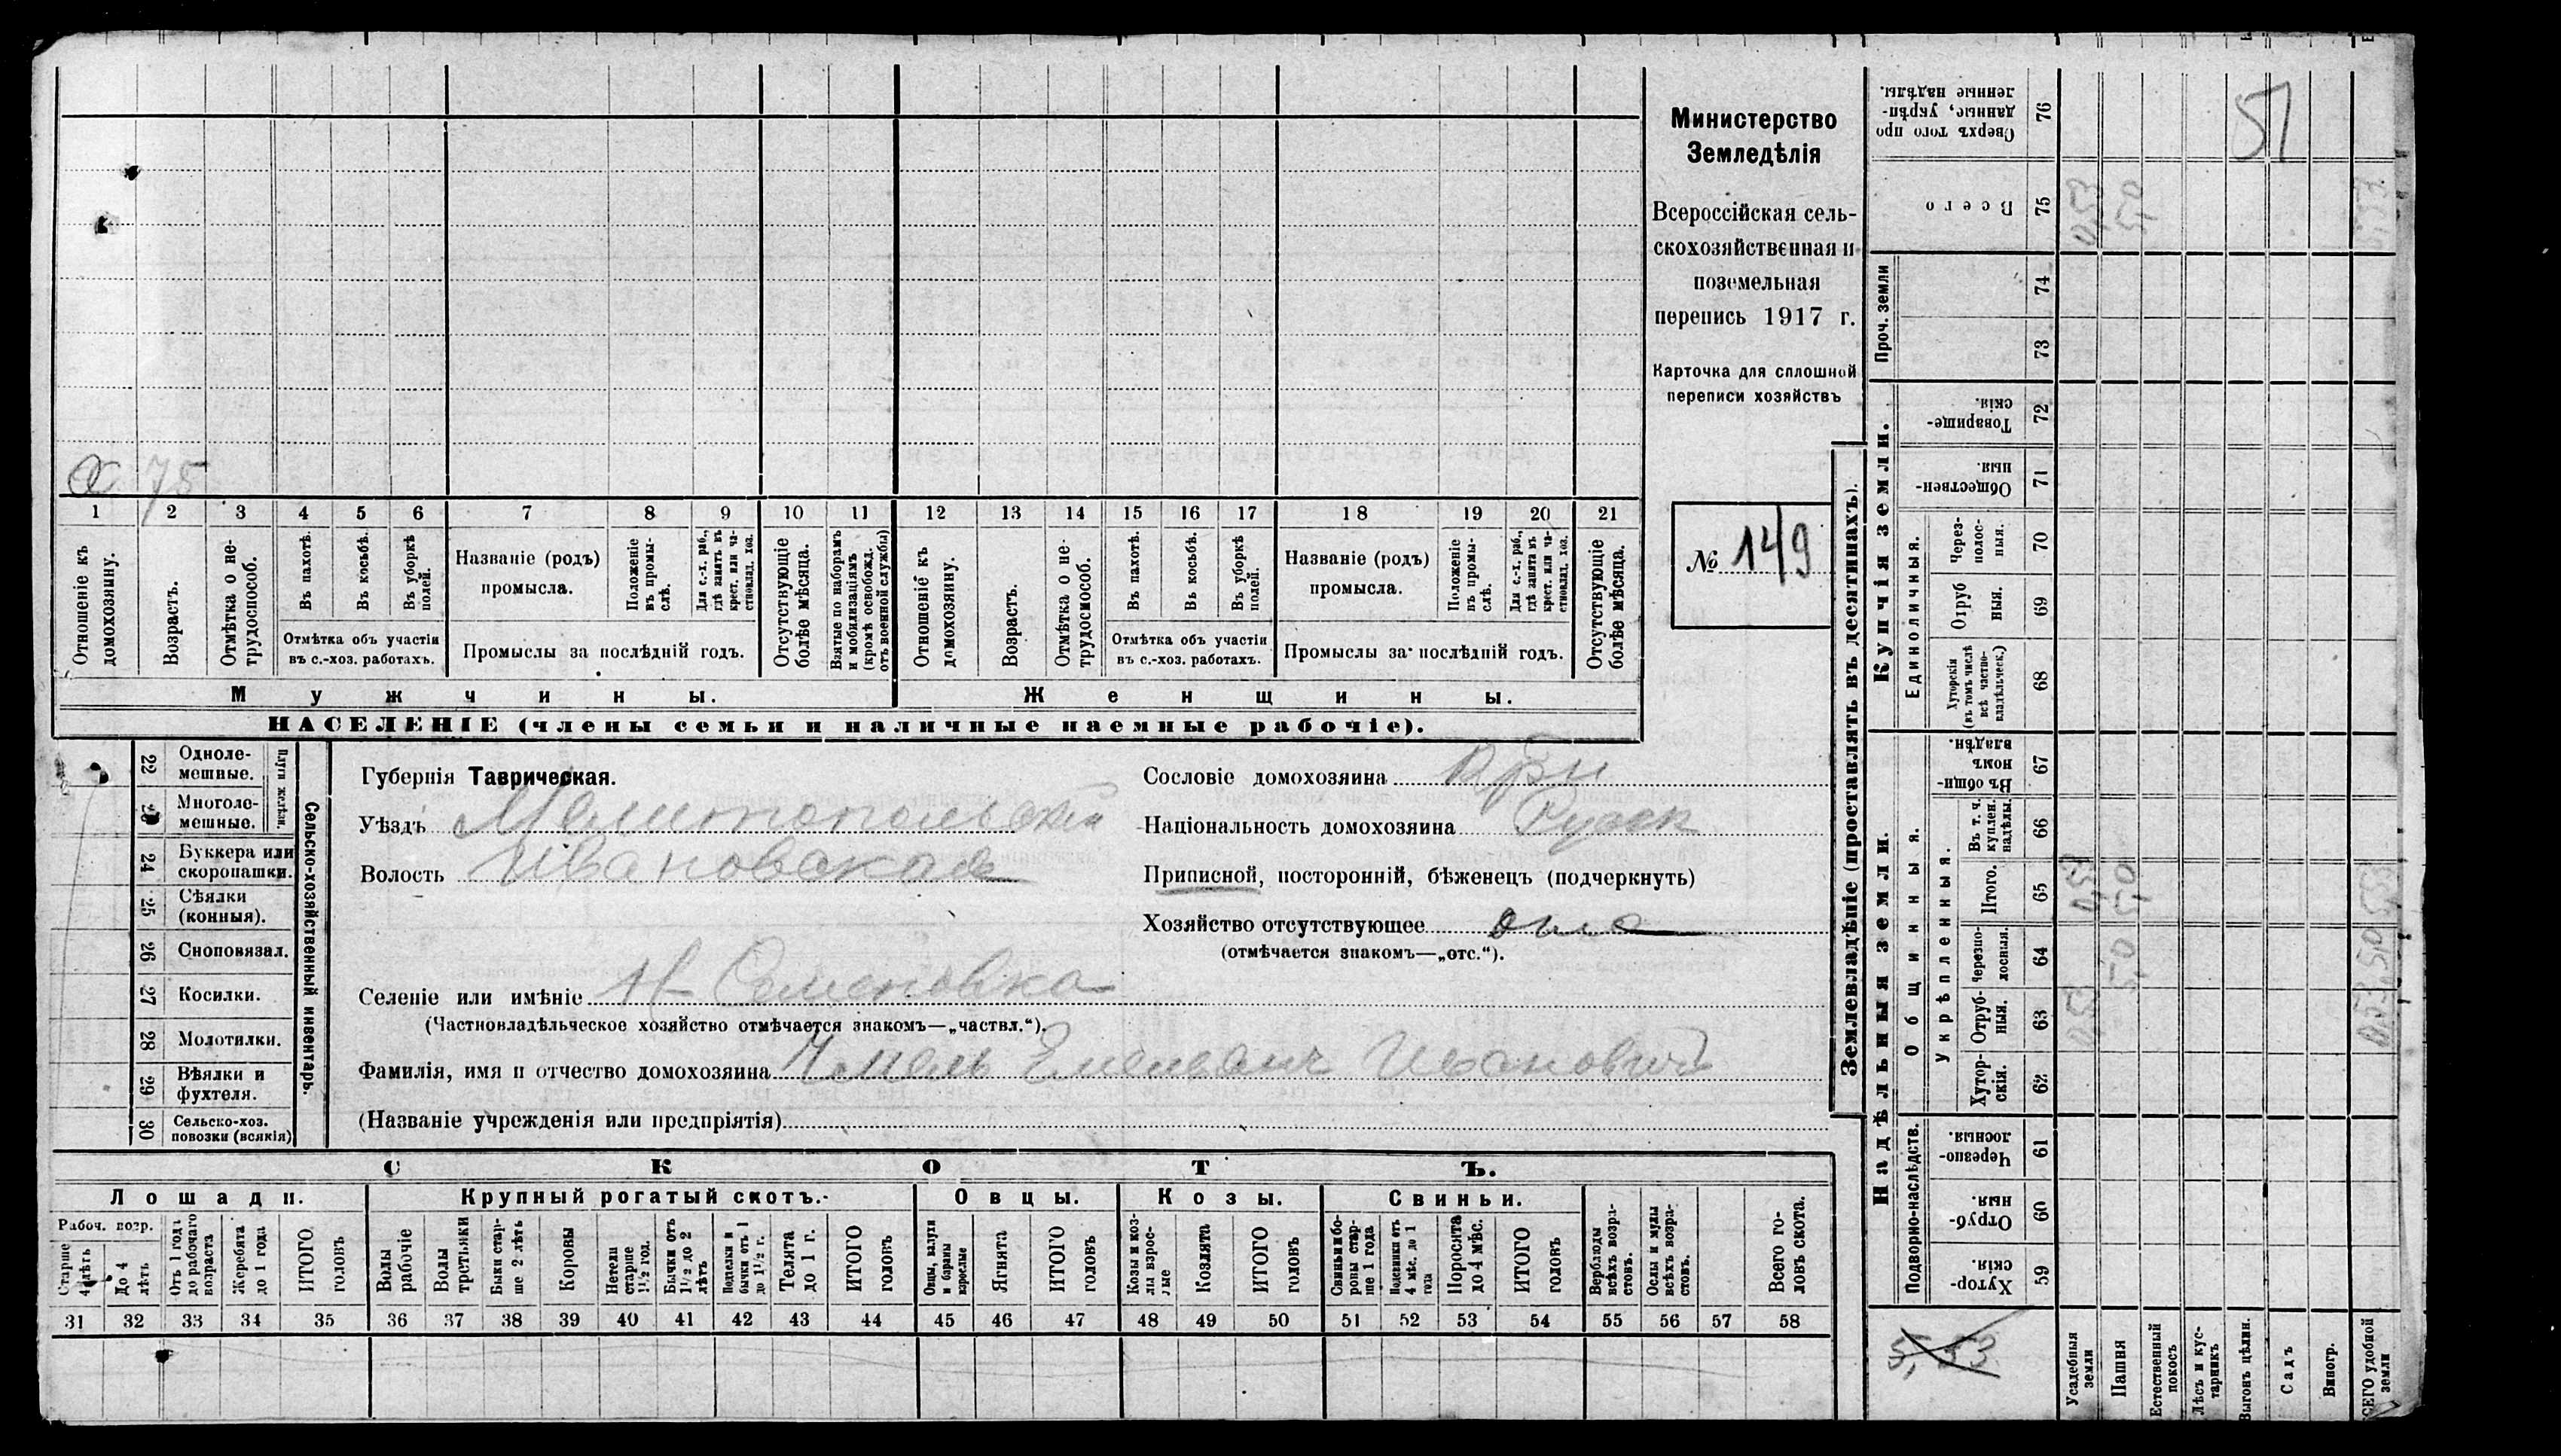 Министерство
Земледѣлія
Всероссійская сель-
скохозяйственная и
поземельная
перепись 1917 г.
Карточка для сплошной
переписи хозяйствъ
№ 149
51
X 75
1 2 3 4 5 6 7 8 9 10 11 12 13 14 15 16 17 18 19 20 21
Отношеніе къ домохозяину.
Возрастъ.
Отмѣтка о не-
трудоспособ.
Въ пахотѣ.
Въ косьбѣ.
Въ уборкѣ полей.
Отмѣтка объ участіи
въ с.-хоз. работахъ.
Названіе (родъ)
промысла.
Положеніе
въ промы-
слѣ.
Для с.-х. раб.,
гдѣ занятъ въ
крест. или ча-
стновлад. хоз.
Промыслы за послѣдній годъ.
Отсутствующіе
болѣе мѣсяца.
Взятые по наборамъ
и мобилизаціямъ
(кромѣ освобожд.
отъ военной службы)
Отношеніе къ
домохозяину.
Возрастъ.
Отмѣтка о не-
трудосмособ.
Въ пахотѣ.
Въ косьбѣ.
Въ уборкѣ
полей.
Отмѣтка объ участіи
въ с.-хоз. работахъ.
Названіе (родъ)
промысла.
Положеніе
въ промы-
слѣ.
Для с.-х. раб.,
гдѣ занята въ
крест. или ча-
стновлад. хоз.
Промыслы за послѣдній годъ.
Отсутствующіе
болѣе мѣсяца.
Мужчины.
Женщины.
НАСЕЛЕНІЕ (члены семьи и наличные наемные рабочіе).
22 Одноле-
мешные.
23 Многоле-
мешные.
Плуги желѣзн.
24 Буккера или
скоропашки.
25 Сѣялки
(конныя).
26 Сноповязал.
27 Косилки.
28 Молотилки.
29 Вѣялки и
фухтеля.
30 Сельско-хоз.
повозки (всякія)
Сельско-хозяйственный инвентарь.
Губернія Таврическая.
Уѣздъ Мелитопольскій
Волость Ивановская
Селеніе или имѣніе Н-Семеновка
(Частновладѣльческое хозяйство отмѣчается знакомъ—„частвл.“).
Фамилія, имя и отчество домохозяина Чмель Емельянъ Ивановичъ
(Названіе учрежденія или предпріятія)
Сословіе домохозяина
Національность домохозяина Русск
Приписной, посторонній, бѣженецъ (подчеркнуть)
Хозяйство отсутствующее отс
(отмѣчается знакомъ—„отс.“).
СКОТЪ.
Лошади.
Крупный рогатый скотъ.
Овцы.
Козы.
Свиньи.
Рабоч. возр.
Старше
4 лѣтъ
До 4
лѣтъ
Отъ 1 годъ
до рабочаго
возраста
Жеребята
до 1 года
ИТОГО
головъ
Волы
рабочіе
Волы
третьяки
Быки стар-
ше 2 лѣтъ
Коровы
Нетели
старше
1½ год.
Бычки отъ
1½ до 2
лѣтъ
Подтелки и
бычки отъ 1
до 1½ г.
Телята
до 1 г.
ИТОГО
головъ
Овцы, валухи
и бараны
взрослые
Ягнята
ИТОГО
головъ
Козы и коз-
лы взрос-
лые
Козлята
ИТОГО
головъ
Свиньи и бо-
ровы стар-
ше 1 года
Подсвинки отъ
4 мѣс. до 1
года
Поросята
до 4 мѣс.
ИТОГО
головъ
Верблюды
всѣхъ возра-
стовъ.
Ослы и мулы
всѣхъ возра-
стовъ.
Всего го-
ловъ скота.
31 32 33 34 35 36 37 38 39 40 41 42 43 44 45 46 47 48 49 50 51 52 53 54 55 56 57 58
Землевладѣніе (проставлять въ десятинахъ).
Сверхъ того про
данные, укрѣп-
ленные надѣлы.
76
Всего
75
0,53
5,0
Проч. земли
74
73
Купчія земли.
Товарище-
скія.
72
Обществен-
ныя.
71
Единоличныя.
Через-
полос-
ныя.
70
Отруб
ныя.
69
Хуторскія
(въ томъ числѣ
всѣ частно-
владѣльческ.)
68
Надѣльныя земли.
Общинныя.
Въ общи-
номъ
владѣн.
67
Укрѣпленныя.
Въ т. ч.
куплен.
надѣлы.
66
Итого.
65
0,53
5,0
Черезпо-
лосныя.
64
5,0
Отруб-
ныя.
63
0,53
Хутор-
скія.
62
Подворно-наслѣдств.
Черезпо-
лосныя.
61
Отруб-
ныя.
60
Хутор-
скія.
59
5,53
Усадебныя
земли
Пашня
Естественный
покосъ
Лѣсъ и кус-
тарникъ
Выгонъ цѣлин.
Садъ
Виногр.
ВСЕГО удобной
земли